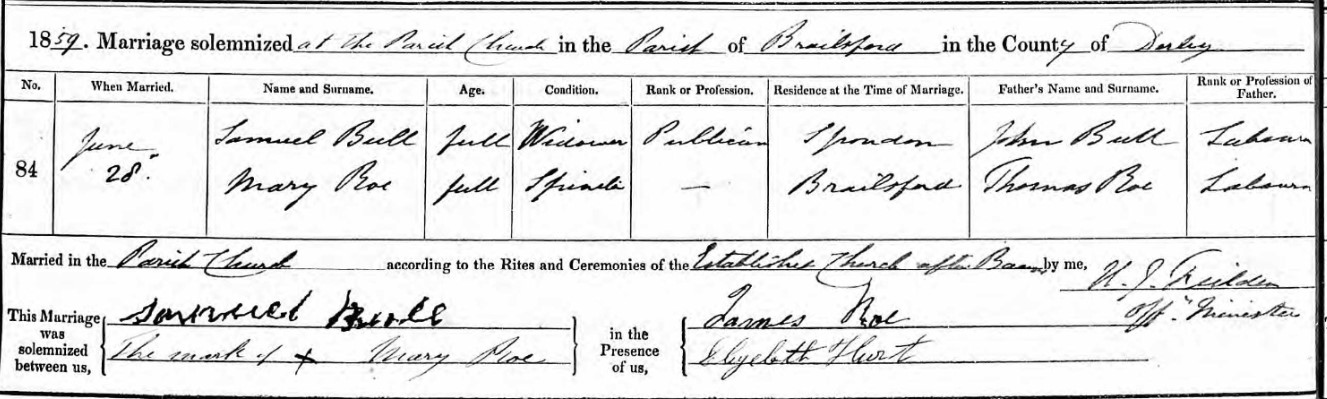 1859. Marriage solemnized at the Parish Church in the Parish of Brailsford in the County of Derby
No. When Married. Name and Surname. Age. Condition. Rank or Profession. Residence at the Time of Marriage. Father's Name and Surname. Rank or Profession of Father.
84 June 28. Samuel Bull full Widower Publican Spondon John Bull Labourer
Mary Roe full Spinster — Brailsford Thomas Roe Labourer
Married in the Parish Church according to the Rites and Ceremonies of the Established Church after Banns by me, H. J. Feilden
Off. Minister
This Marriage was solemnized between us, Samuel Bull in the Presence of us, James Roe
The mark of x Mary Roe Elizabeth Hurst